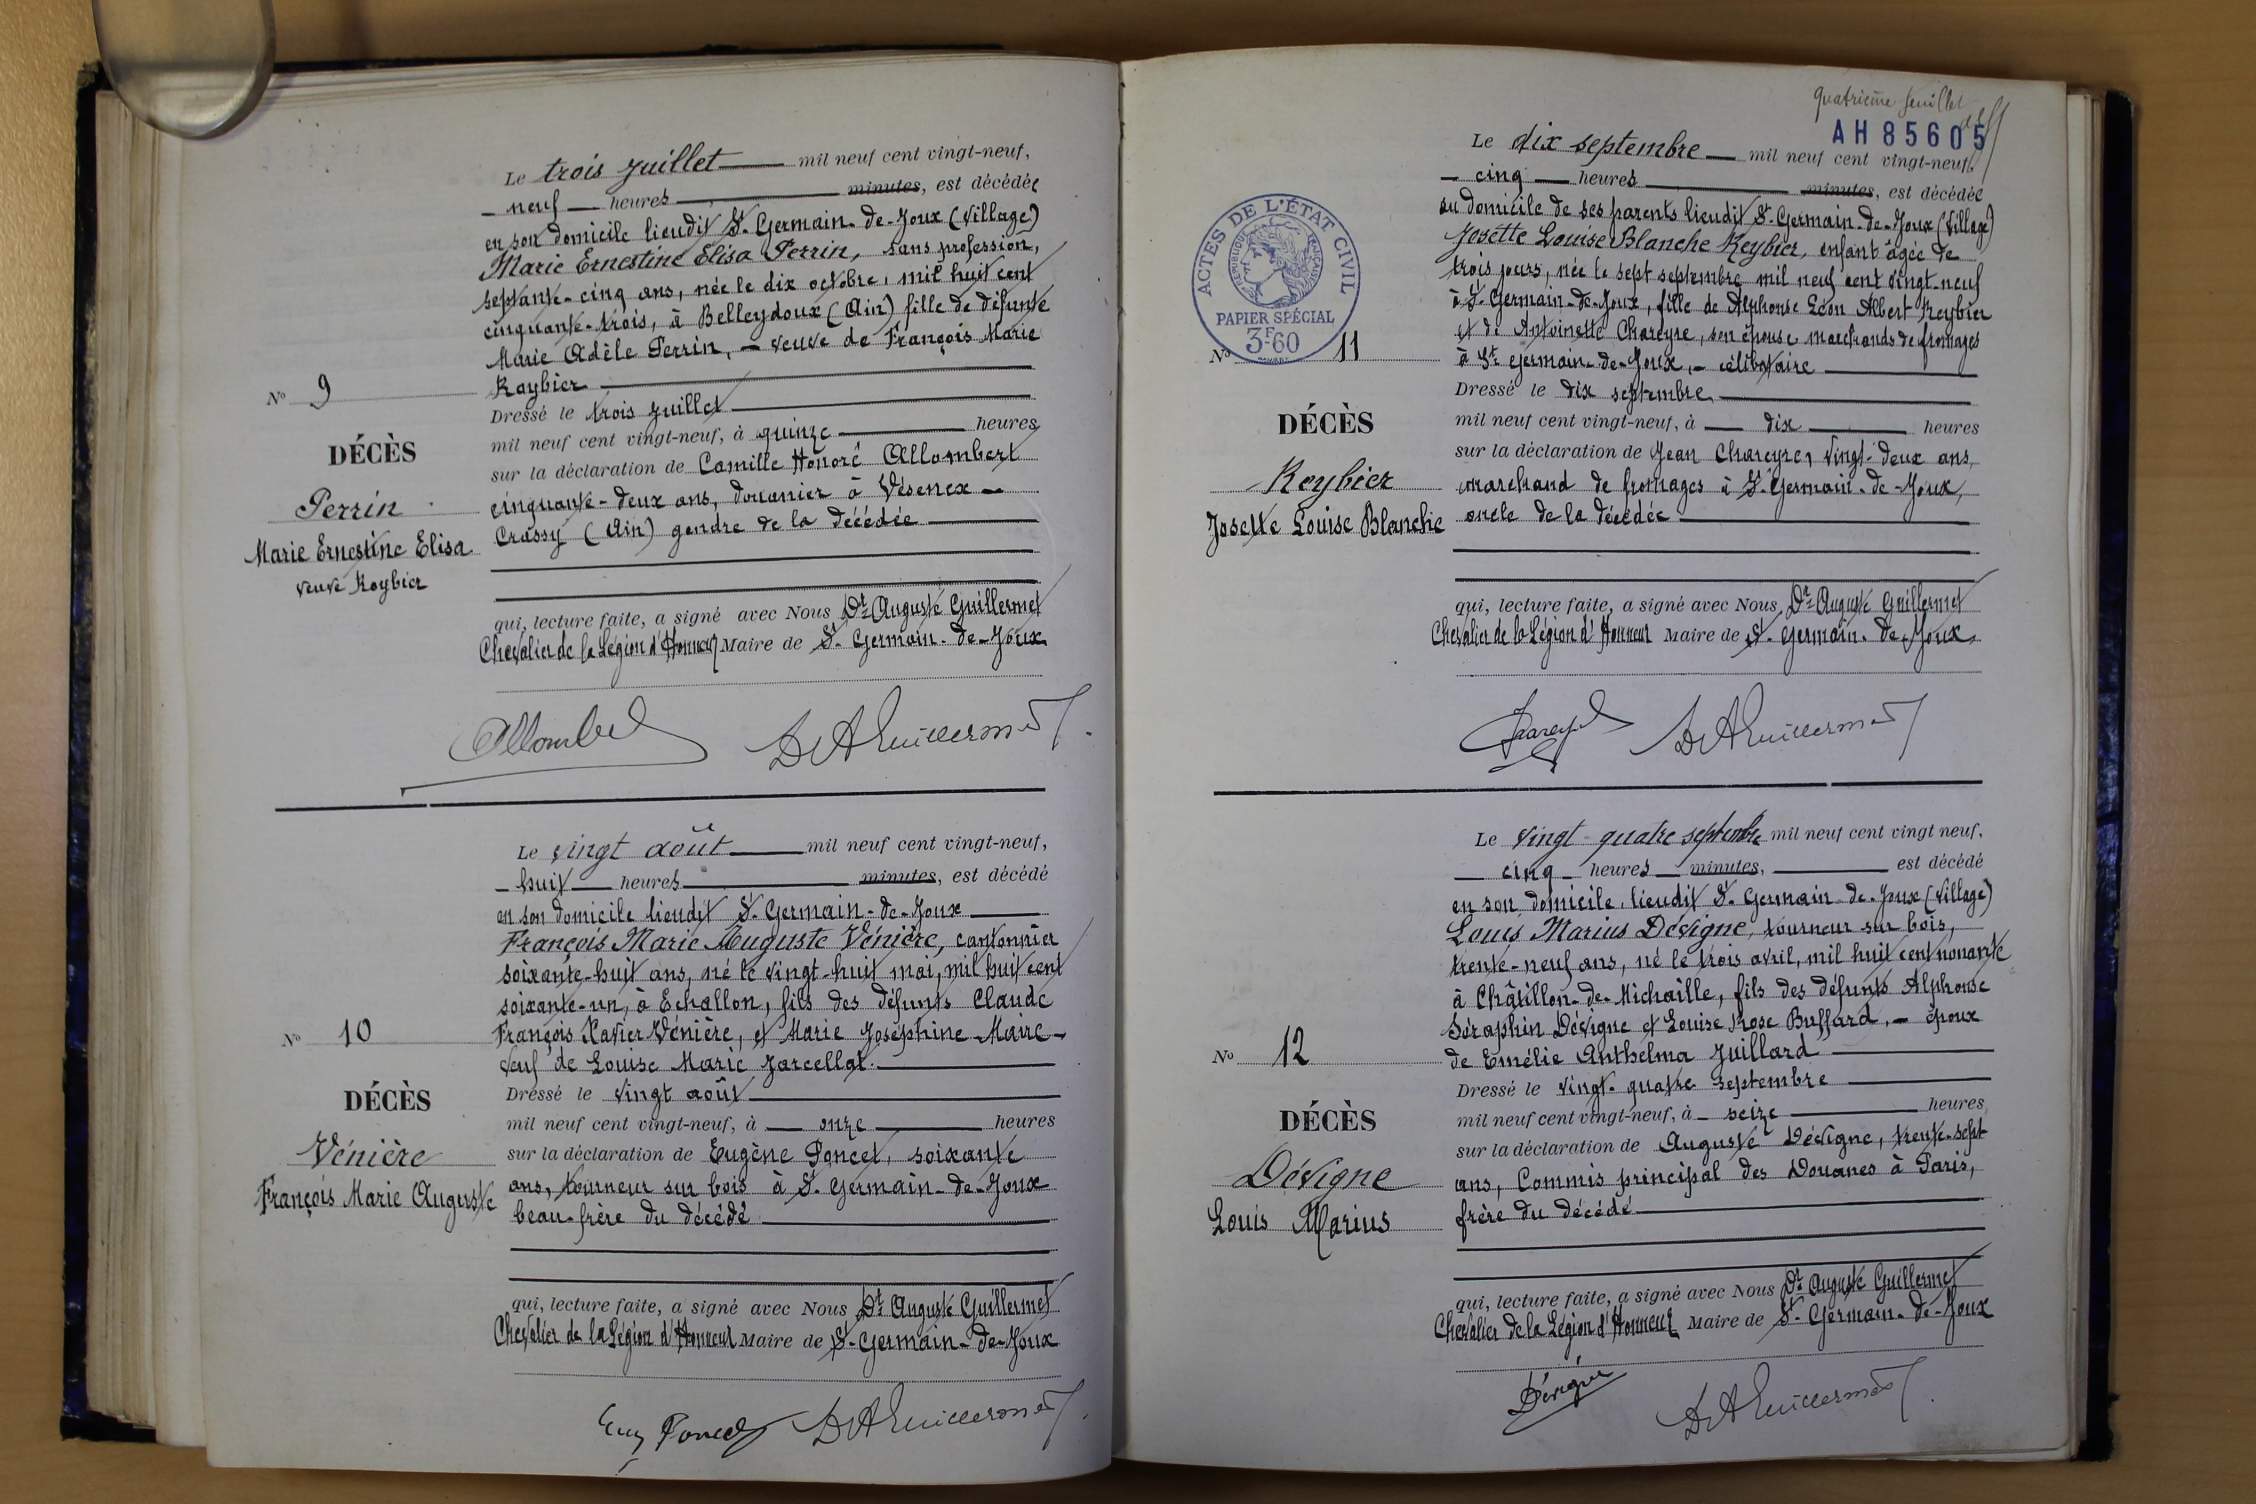 Le trois juillet mil neuf cent vingt-neuf,
neuf heures minutes, est décédée
en son domicile lieudit St Germain-de-Joux (Village)
Marie Ernestine Elisa Perrin, sans profession,
septante-cinq ans, née le dix octobre, mil huit cent
cinquante-trois, à Belleydoux (Ain) fille de défunte
Marie Adèle Perrin, - veuve de François Marie
Reybier
Dressé le trois juillet
mil neuf cent vingt-neuf, à quinze heures
sur la déclaration de Camille Honoré Allombert
cinquante-deux ans, douanier à Vésenex-
Crassy (Ain) gendre de la décédée
qui, lecture faite, a signé avec Nous Dr Auguste Guillermet
Chevalier de la Légion d'Honneur Maire de St Germain-de-Joux
No 9
DÉCÈS
Perrin
Marie Ernestine Elisa
veuve Reybier
Allombert
Dr A Guillermet
Le vingt août mil neuf cent vingt-neuf,
huit heures minutes, est décédé
en son domicile lieudit St Germain-de-Joux
François Marie Auguste Vénière, cantonnier
soixante-huit ans, né le vingt-huit mai, mil huit cent
soixante-un, à Echallon, fils des défunts Claude
François Xavier Vénière, et Marie Joséphine Maire-
veuf de Louise Marie Jarcellat.
Dressé le vingt août
mil neuf cent vingt-neuf, à onze heures
sur la déclaration de Eugène Poncet, soixante
ans, tourneur sur bois à St Germain-de-Joux
beau-frère du décédé
qui, lecture faite, a signé avec Nous Dr Auguste Guillermet
Chevalier de la Légion d'Honneur Maire de St Germain-de-Joux
No 10
DÉCÈS
Vénière
François Marie Auguste
Eug Poncet
Dr A Guillermet
quatrième feuillet
AH 85605
ACTES DE L'ÉTAT CIVIL
RÉPUBLIQUE FRANÇAISE
PAPIER SPÉCIAL
3F60
Le dix septembre mil neuf cent vingt-neuf,
cinq heures minutes, est décédée
au domicile de ses parents lieudit St Germain-de-Joux (Village)
Josette Louise Blanche Reybier, enfant âgée de
trois jours, née le sept septembre mil neuf cent vingt-neuf
à St Germain-de-Joux, fille de Alphonse Léon Albert Reybier
et de Antoinette Chareyre, son épouse marchands de fromages
à St Germain-de-Joux, - célibataire
Dressé le dix septembre
mil neuf cent vingt-neuf, à dix heures
sur la déclaration de Jean Chareyre, vingt-deux ans,
marchand de fromages à St Germain-de-Joux,
oncle de la décédée
qui, lecture faite, a signé avec Nous Dr Auguste Guillermet
Chevalier de la Légion d'Honneur Maire de St Germain-de-Joux
No 11
DÉCÈS
Reybier
Josette Louise Blanche
Dr A Guillermet
Le vingt-quatre septembre mil neuf cent vingt neuf,
cinq heures minutes, est décédé
en son domicile, lieudit St Germain-de-Joux (Village)
Louis Marius Dévigne, tourneur sur bois,
trente-neuf ans, né le trois avril, mil huit cent nonante
à Châtillon-de-Michaille, fils des défunts Alphonse
Séraphin Dévigne et Louise Rose Buffard, - époux
de Emélie Anthelma Juillard
Dressé le vingt-quatre septembre
mil neuf cent vingt-neuf, à seize heures
sur la déclaration de Auguste Dévigne, trente-sept
ans, Commis principal des Douanes à Paris,
frère du décédé
qui, lecture faite, a signé avec Nous Dr Auguste Guillermet
Chevalier de la Légion d'Honneur Maire de St Germain-de-Joux
No 12
DÉCÈS
Dévigne
Louis Marius
Dévigne
Dr A Guillermet